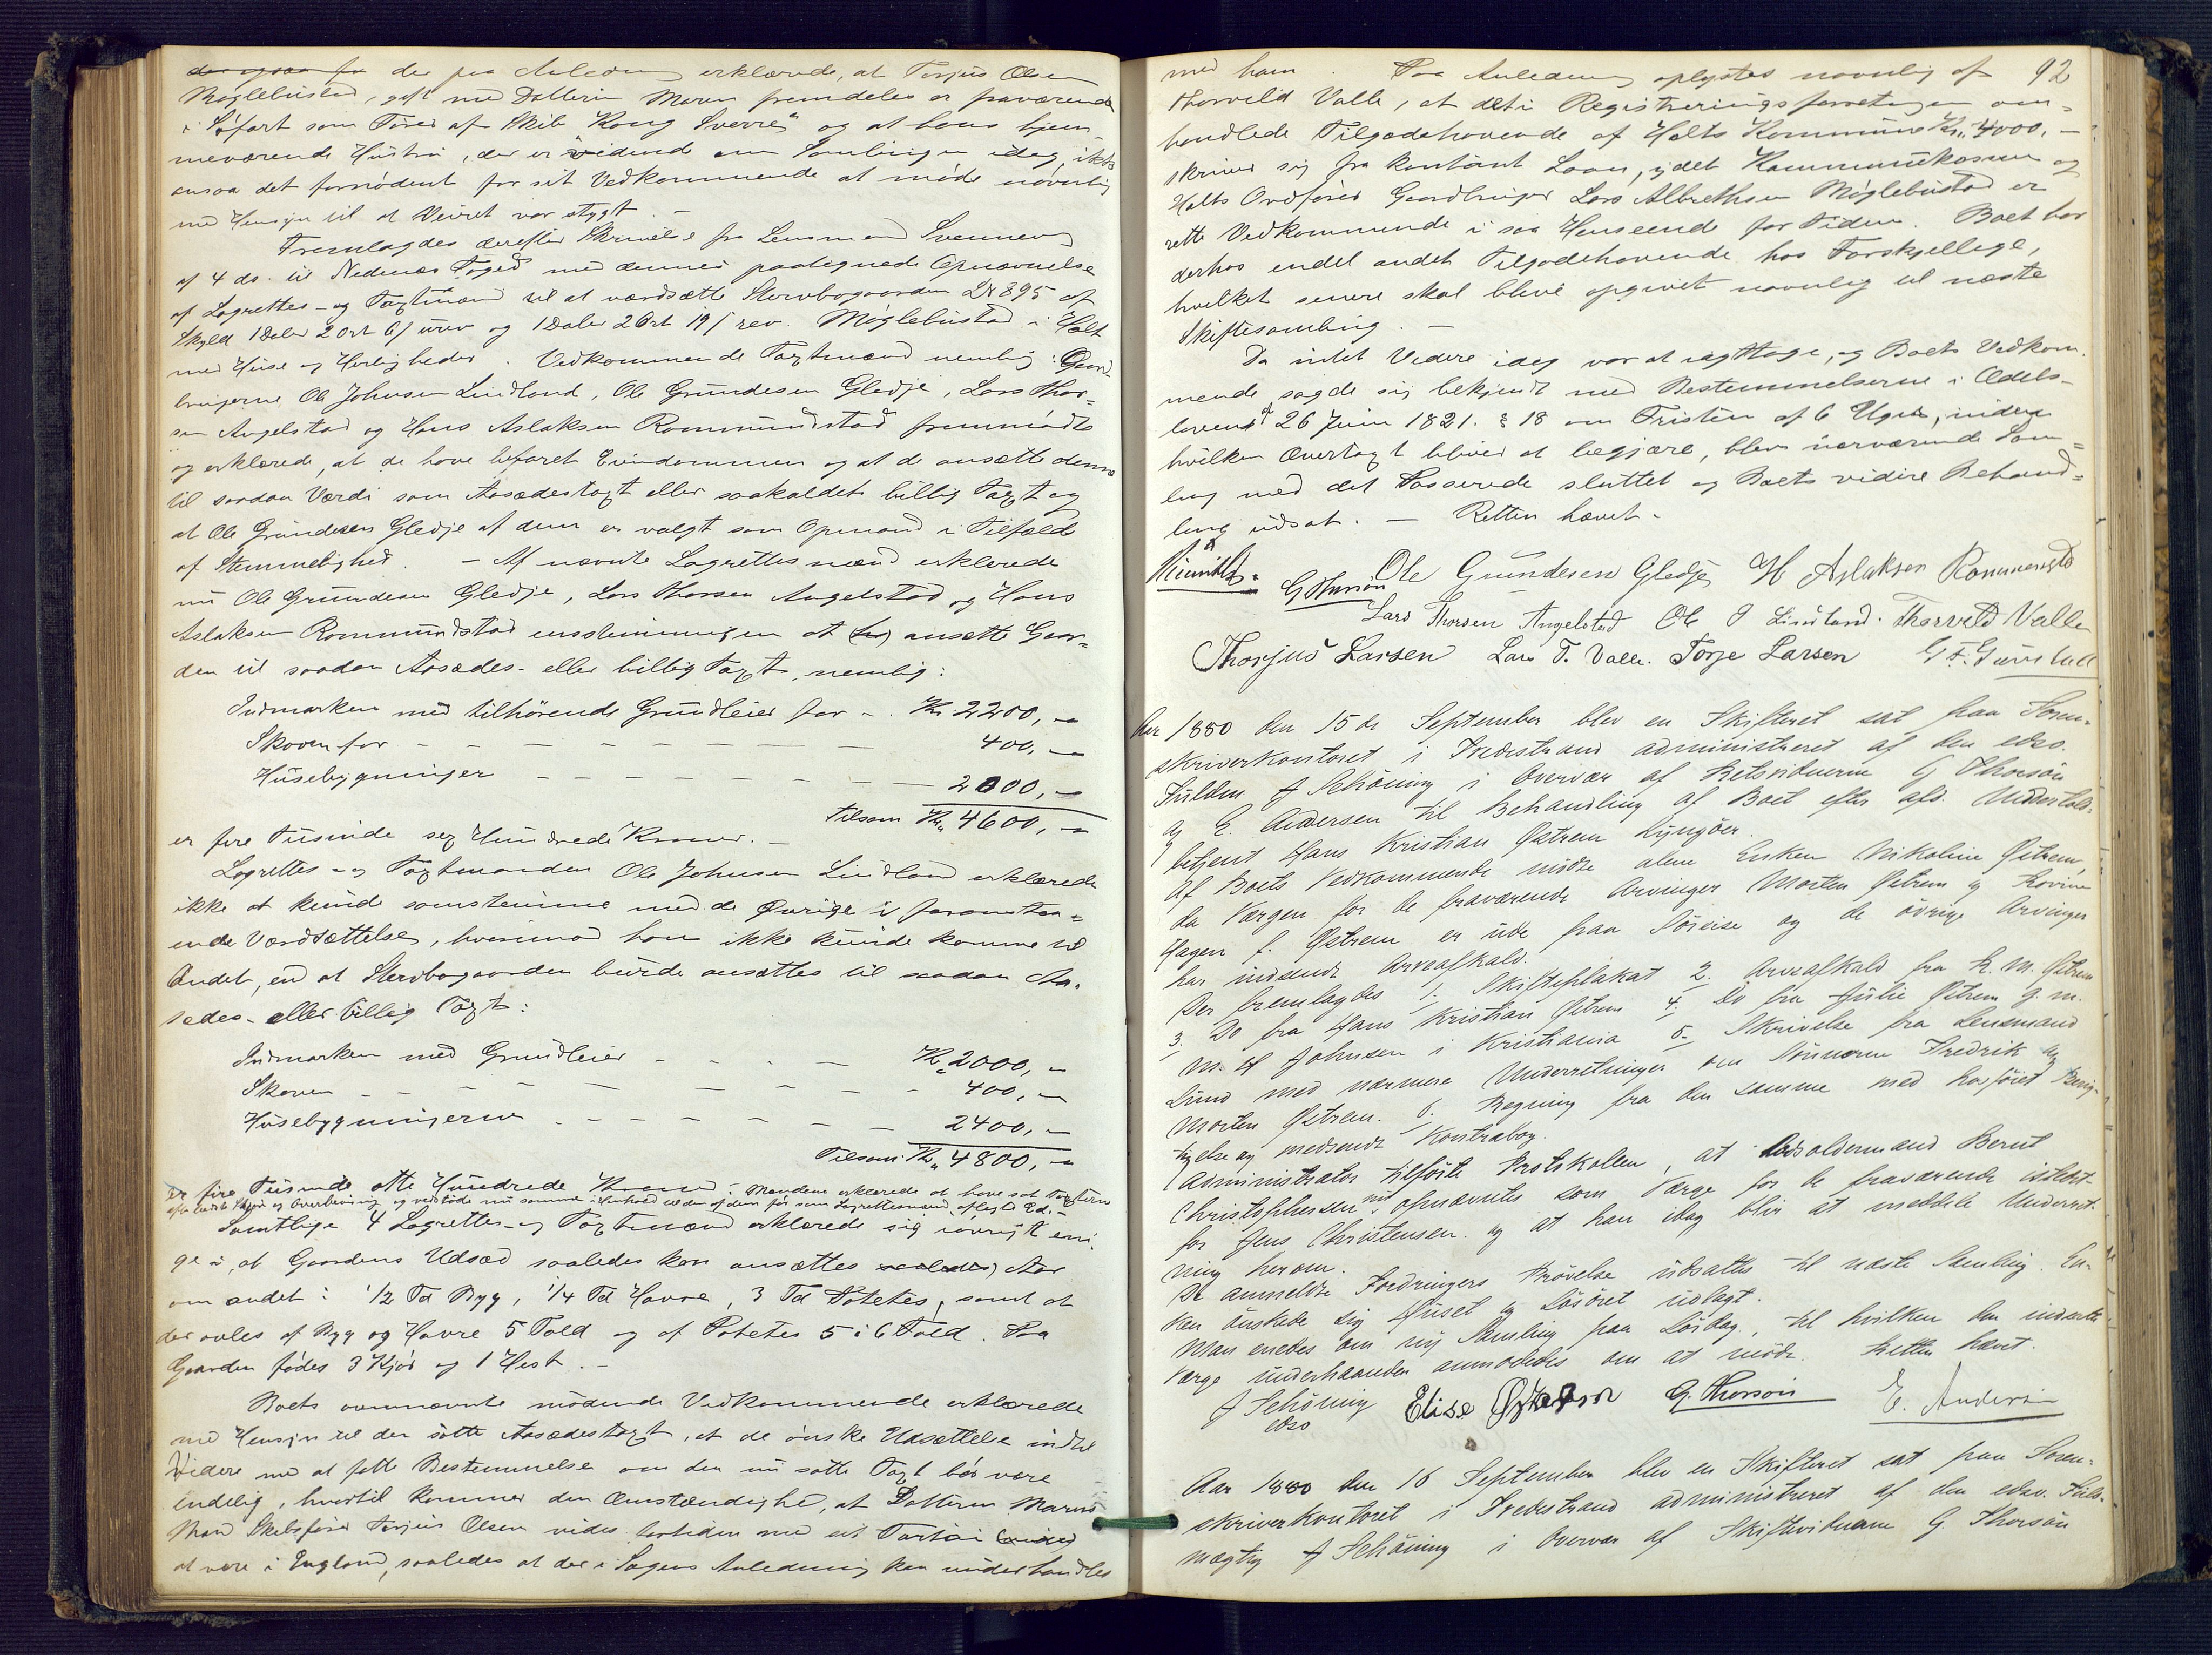 der paa Anledning erklærede, at Torjus Olsen
Møglebustad, gift med Datteren Maren fremdeles er fraværende
i Søfart som Fører af Skib "Kong Sverre" og at hans hjem-
meværende Hustru, der er vidende om Samlingen idag, ikke
ansaa det fornødent for sit Vedkommende at møde navnlig
med Hensyn til at Veiret var stygt. -
Fremlagdes derefter Skrivelse fra Lensmand Svennevig
af 4 ds. til Nedenæs Foged med dennes paategnede Opnævnelse
af Lagrettes- og Taxtmænd til at værdsætte Stervbogaarden 895 af
Skyld 1 Daler 2 Ort 6 / urev og 1 Daler 2 Ort 19 / rev. Møglebustad i Holt
med Huse og Herligheder. Vedkommende Taxtmænd nemlig: Gaard-
brugerne Ole Johnsen Lindland, Ole Gundesen Gledje, Lars Thor-
sen Angelstad og Hans Aslaksen Rommundstad fremmødte
og erklærede, at de have befaret Eiendommen og at de ansætte denne
til saadan Værdi som Aasædestaxt eller saakaldet billig Taxt og
at Ole Gundesen Gledje af dem er valgt som Opmand i Tilfælde
af Stemmelighed. - Af nævnte Lagrettesmænd erklærede
nu Ole Gundesen Gledje, Lars Thorsen Angelstad og Hans
Aslaksen Rommundstad enstemmigen at ansætte Gaar-
den til saadan Aasædes- eller billig Taxt, nemlig:
Indmarken med tilhørende Grundleier for - Kr. 2200, -
Skoven for - - - - - - - - 400, -
Husebygninger - - - - - - - 2000, -
Tilsam Kr. 4600, -
er fire Tusinde sex Hundrede Kroner. -
Lagrettes- og Taxtmanden Ole Johnsen Lindland erklærede
ikke at kunde samstemme med de Øvrige i foranstaa-
ende Værdsættelse, hvorimod han ikke kunde komme til
Andet, end at Stervbogaarden burde ansættes til saadan Aa-
sædes- eller billig Taxt:
Indmarken med Grundleier - - - - Kr. 2000, -
Skoven - - - - - - - 400, -
Husebygningerne - - - - - - 2400, -
Tilsam. Kr. 4800, -
er fire Tusinde otte Hundrede Kroner. - Mændene erklærede at have sat Taxterne
efter bedste Skjøn og Overbevisning og vedstode nu samme i Henhold til den af dem før som Lagrettesmænd aflagte Ed. -
Samtlige 4 Lagrettes- og Taxtmænd erklærede sig iøvrigt eni-
ge i, at Gaardens Udsæd saaledes kan ansættes Aar
om andet: 1/2 Td Byg, 1/4 Td Havre, 3 Td Potetes, samt at
der avles af Byg og Havre 5 Fold og af Potetes 5 à 6 Fold. Paa
Gaarden fødes 3 Kjør og 1 Hest. -
Boets ovennævnte mødende Vedkommende erklærede
med Hensyn til den satte Aasædestaxt, at de ønske Udsættelse indtil
Videre med at fatte Bestemmelse om den nu satte Taxt bør være
endelig, hvortil kommer den Omstændighed, at Datteren Marens
Mand Skibsfører Torjus Olsen vides fortiden med sit Fartøi
at være i England, saaledes at der i Sagens Anledning kan underhandles
92
med ham. Paa Anledning oplystes navnlig af
Thorvald Valle, at det i Registreringsforretningen om-
handlede Tilgodehavende af Holts Kommune Kr. 4000, -
skriver sig fra kontant Laan, idet Kommunekassen og
Holts Ordfører Gaardbruger Lars Albrethsen Møglebustad er
rette Vedkommende i saa Henseende for Tiden. Boet har
derhos endel andet Tilgodehavende hos Forskjellige,
hvilket senere skal blive opgivet navnlig til næste
Skiftesamling. -
Da intet Videre idag var at iagttage, og Boets Vedkom-
mende sagde sig bekjendt med Bestemmelserne i Odels-
lovens af 26 Juni 1821. § 18 om Fristen af 6 Uger, inden
hvilken Overtaxt bliver at begjære, blev nærværende Sam-
ling med det Passerede sluttet og Boets videre Behand-
ling udsat. - Retten hævet. -
G Thorsøn Ole Gundesen Gledje H Aslaksen Rommunstad
Lars Thorsen Angelstad Ole J Lindland. Thorvald Valle
Thorjus Larsen Lars T. Valle. Torje Larsen
Aar 1880 den 15de September blev en Skifteret sat paa Soren-
skriverkontoret i Tvedestrand administreret af den edsv.
Fuldm. J Schöning i Overvær af Retsvidnerne G Thorsøn
og E. Andersen til Behandling af Boet efter afd. Undertold-
betjent Hans Kristian Østrem Lyngøer.
Af Boets Vedkommende mødte alene Enken Nikoline Østrem,
da Værgen for de fraværende Arvinger Morten Østrem og Lovine
Hagen f. Østrem er ude paa Søreise og de øvrige Arvinger
har indsendt Arveafkald.
Der fremlagdes 1. Skifteplakat 2. Arveafkald fra K. M. Østrem
3. Do fra Hans Kristian Østrem 4. Do fra Julie Østrem g. m.
M. H Johnsen i Kristiania 5. Skrivelse fra Lensmand
Lund med nærmere Underretninger om Sønnerne Fredrik og
Morten Østrem. 6. Regning fra den samme med hosføiet Bevig-
telse og medsendt Kontrabog.
Administrator tilførte Protokollen, at Lodsoldermand Bernt
Christophersen nu opnævntes som Værge for de fraværende istedet-
for Jens Christensen og at han idag blir at meddele Underret-
ning herom.
De anmeldte Fordringers Prøvelse udsattes til næste Samling. En-
ken ønskede sig Huset og Løsøret udlagt.
Man enedes om ny Samling paa Lørdag, til hvilken den indsatte
Værge underhaanden anmodedes om at møde. Retten hævet.
J Schöning Elise Østrem G. Thorsøn E. Andersen
edsv
Aar 1880 den 16 September blev en Skifteret sat paa Soren-
skriverkontoret i Tvedestrand administreret af den edsv. Fuld-
mægtig J Schöning i Overvær af Skiftevidnerne G. Thorsøn